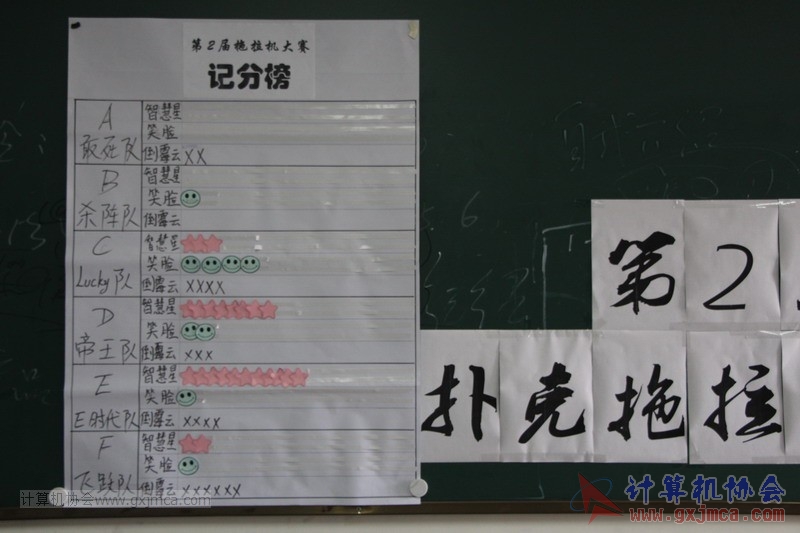 第2届拖拉机大赛
记分榜
A
敢死队
智慧星
笑脸
倒霉云 XX
B
杀阵队
智慧星
笑脸
倒霉云
C
Lucky队
智慧星
笑脸
倒霉云 XXXX
D
帝王队
智慧星
笑脸
倒霉云 XXX
E
E时代队
智慧星
笑脸
倒霉云 XXXX
F
飞跃队
智慧星
笑脸
倒霉云 XXXXXX
第2
扑克拖拉
计算机协会www.gxjmca.com
计算机协会
www.gxjmca.com